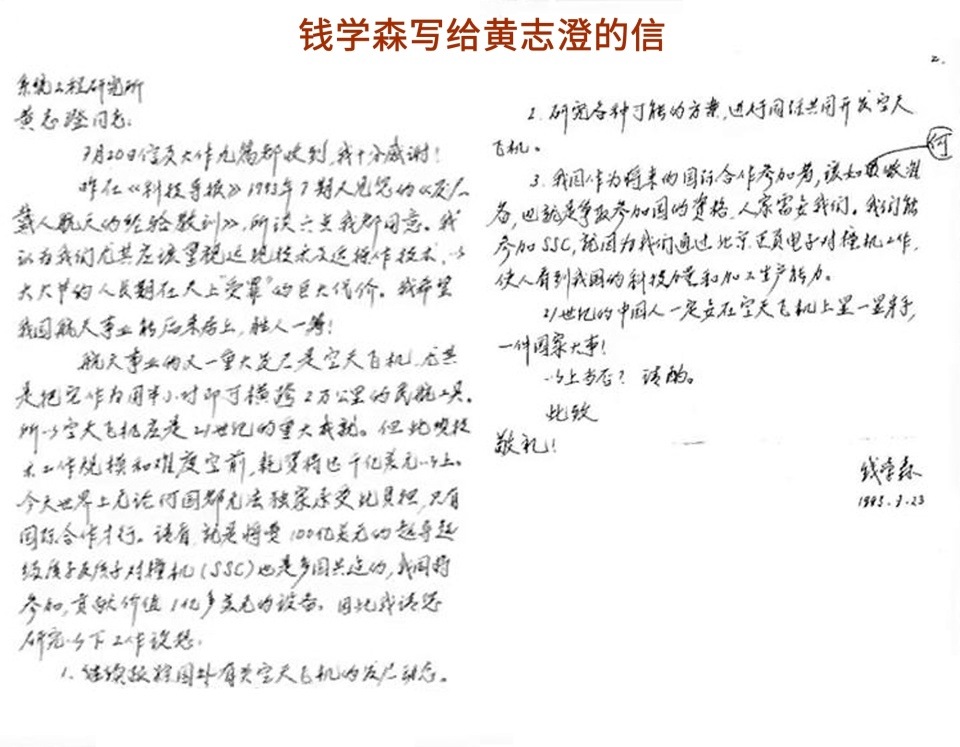 钱学森写给黄志澄的信
系统工程研究所
黄志澄同志：
7月20日信及大作九篇都收到，我十分感谢！
昨在《科技导报》1993年7期又见您的《发展
载人航天的经验教训》，所谈六点我都同意。我
认为我们尤其应该重视近地技术及遥操作技术，以
大大节约人员期在天上“受罪”的巨大代价。我希望
我国航天事业能后来居上，胜人一筹！
航天事业的又一重大发展是空天飞机，尤其
是把它作为用半小时即可横跨2万公里的民航工具。
所以空天飞机应是21世纪的重大成就。但此项技
术工作规模和难度空前，耗资将近千亿美元以上。
今天世界上无论何国都无法独家承受此负担，只有
国际合作才行。请看，就是将要100亿美元的超导超
级质子反质子对撞机(SSC)也是多国共造的，我国将
参加，贡献价值1亿多美元的设备。因此我请您
研究以下工作设想：
1. 继续跟踪国外有关空天飞机的发展动态。
2.
2. 研究各种可能的方案，进行国际共同开发空天
飞机。
3. 我国作为将来的国际合作参加者，该如何做准
备，也就是争取参加国的资格，人家需要我们。我们能
参加SSC，就因为我们通过北京正负电子对撞机工作，
使人看到我国的科技力量和加工生产能力。
21世纪的中国人一定要在空天飞机上显一显身手，
一件国家大事！
以上当否？请酌。
此致
敬礼！
钱学森
1993.7.23